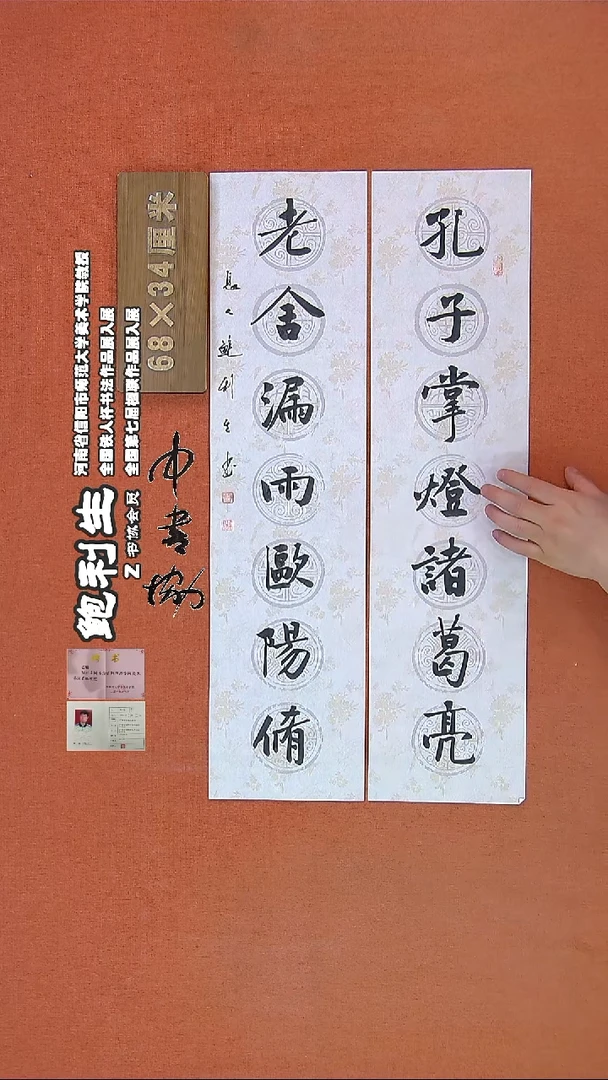 孔子掌燈諸葛亮
老舍漏雨歐陽脩
鮑利生書
68×34厘米
河南省信阳市师范大学美术学院教授
全国铁人杯书法作品展入展
全国第七届楹联作品展入展
鲍利生
Z书协会员
中书协